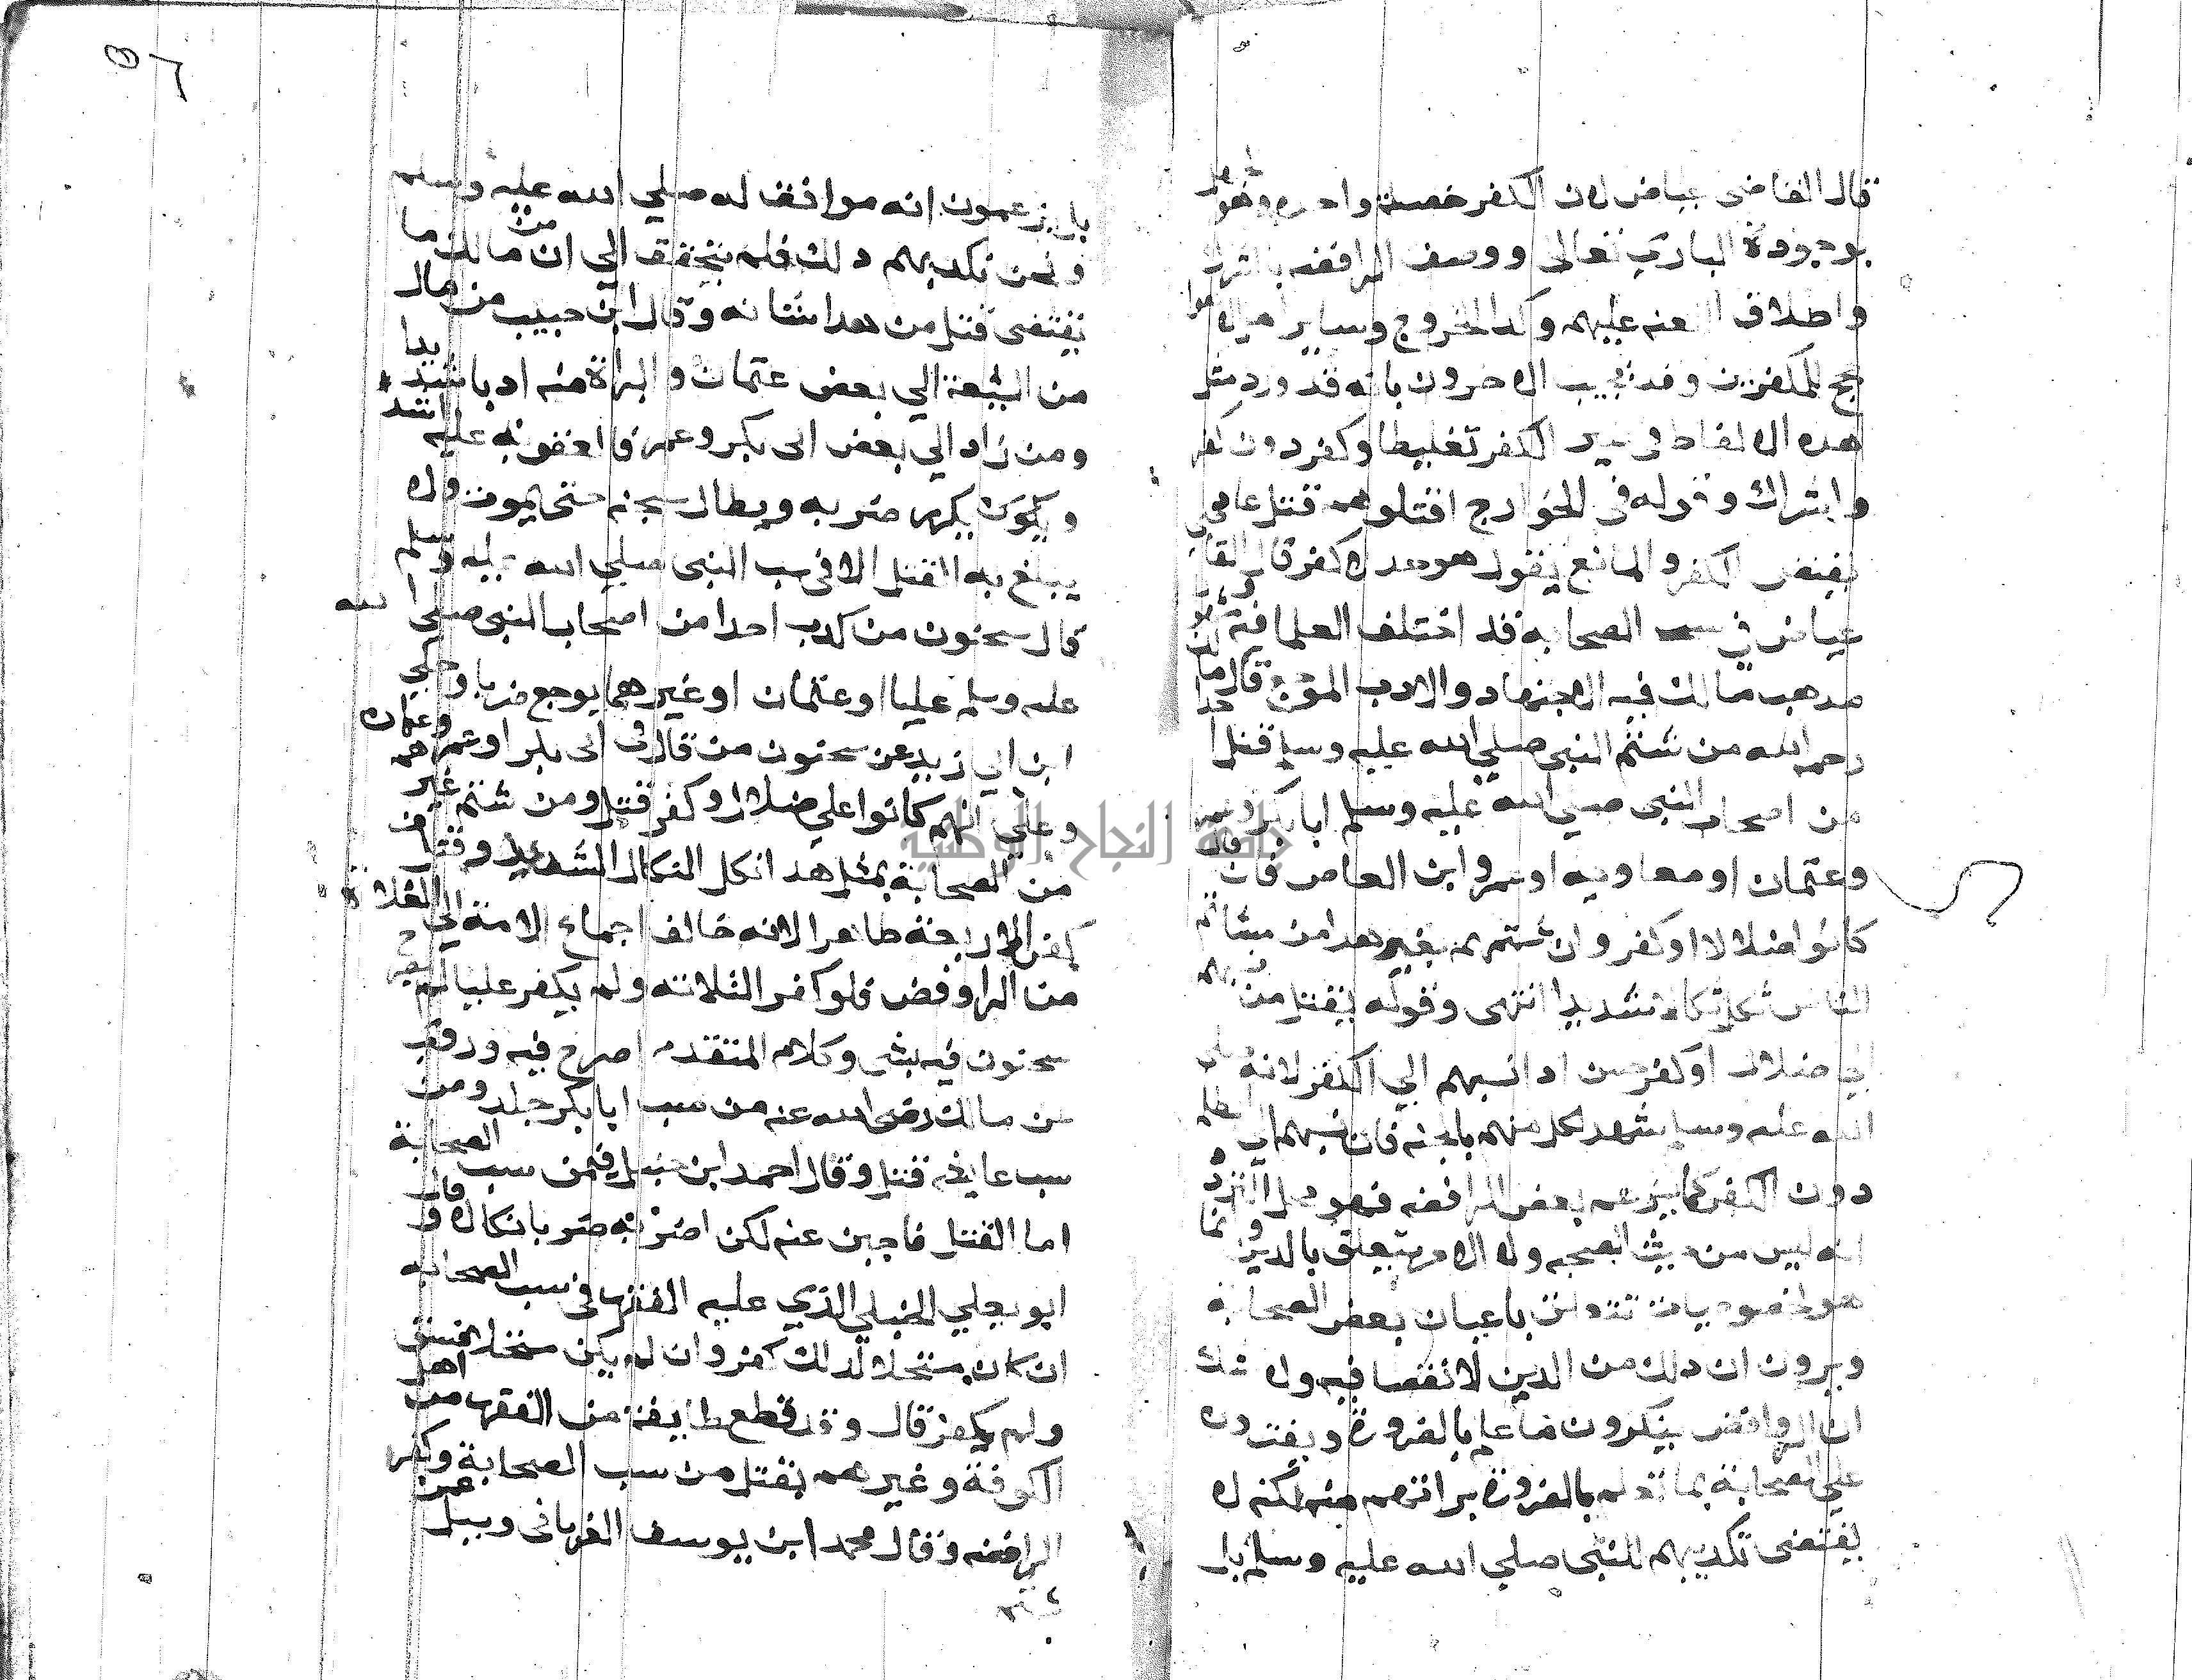 قال القاضي عياض لان الكفر خصلة واحده وهو
بوجوده الباري تعالى ووصف الرافضه بالشرك
واطلاق اللعنه عليهم وكذا الخروج وساير اهل الاهوا
حجج للمكفرين وقد يجيب الاخرون بانه قد ورد مثل
هذه الالفاظ في غير الكفر تغليظا وكفر دون كفر
واشراك وقوله في الخوارج اقتلوهم قتل عاد
يقتضى الكفر والمانع يقول هو حد لا كفر قال القاضي
عياض في سب الصحابه قد اختلف العلما فيه
مذهب مالك فيه الاجتهاد والادب الموجع قال مالك
رحمه الله من شتم النبى صلي الله عليه وسلم قتل
من اصحاب النبى صلي الله عليه وسلم ابا بكر وعمر
وعثمان او معاويه او عمرو ابن العاص فان قال
كانوا ضلالا او كفر وان شتمهم بغير هذا من مشاتم
الناس نكل نكالا شديدا انتهى وقوله يقتل من نسبهم
الي ضلال او كفر حسن اذا نسبهم الي الكفر لانه صلى
الله عليه وسلم شهد لكل منهم بالجنه فان نسبهم الي الظلم
دون الكفر كما يزعمه بعض الرافضه فهو محل التردد
انه ليس من حيث الصحبه ولا لامر يتعلق بالدين وانما
هو لخصوصيات تتعلق باعيان بعض الصحابة
ويرون ان ذلك من الدين لا نقصا فيه ولا شك
ان الروافض ينكرون ما علم بالضروره ويفترون
علي الصحابة بما نعلم بالضروره براتهم منه لكنه لا
يقتضى تكذيبهم للنبى صلي الله عليه وسلم بل
بل يزعمون انه موافق له صلي الله عليه وسلم
ونحن نكذبهم في ذلك فلم يتحقق الي ان من مالك ما
يقتضى قتل من هذا شانه وقال ابن حبيب من غال
من الشيعة الي بعض عثمان والبراة منه ادبا شديدا
ومن زاد الي بعض ابى بكر وعمر فالعقوبه عليه اشد
ويكرر ضربه ويطال سجنه حتى يموت ولا
يبلغ به القتل الا في سب النبى صلي الله عليه وسلم
قال سحنون من كذب احدا من اصحاب النبى صلي الله
عليه وسلم عليا او عثمان او غيرهما يوجع ضربا وحكي
ابن ابي زيد عن سحنون من قال في ابى بكر او عمر وعثمان
وعلي انهم كانوا علي ضلال او كفر قتل ومن شتم غيرهم
من الصحابة بمثل هذا نكل النكال الشديد وقتل من
كفر الاربعة ظاهرا لانه خالف اجماع الامة الي الغلاة
من الروافض فلو كفر الثلاثه ولم يكفر عليا لم يصرح
سحنون فيه بشى وكلام المتقدم اصرح فيه وروى
عن مالك رضى الله عنه من سب ابا بكر جلد ومن
سب عايشه قتل وقال احمد ابن حنبل فيمن سب الصحابة
اما القتل فاجبن عنه لكن اضربه ضربا نكالا وقال
ابو يعلي الحنبلي الذي عليه الفقها في سب الصحابه
ان كان مستحلا لذلك كفر وان لم يكن مستحلا فسق
ولم يكفر قال وقد قطع طايفة من الفقها من اهل
الكوفة وغيرهم بقتل من سب الصحابة وكفر
الرافضه وقال محمد ابن يوسف الفريابى وسيل عمن
شتم
جامعة النجاح الوطنية